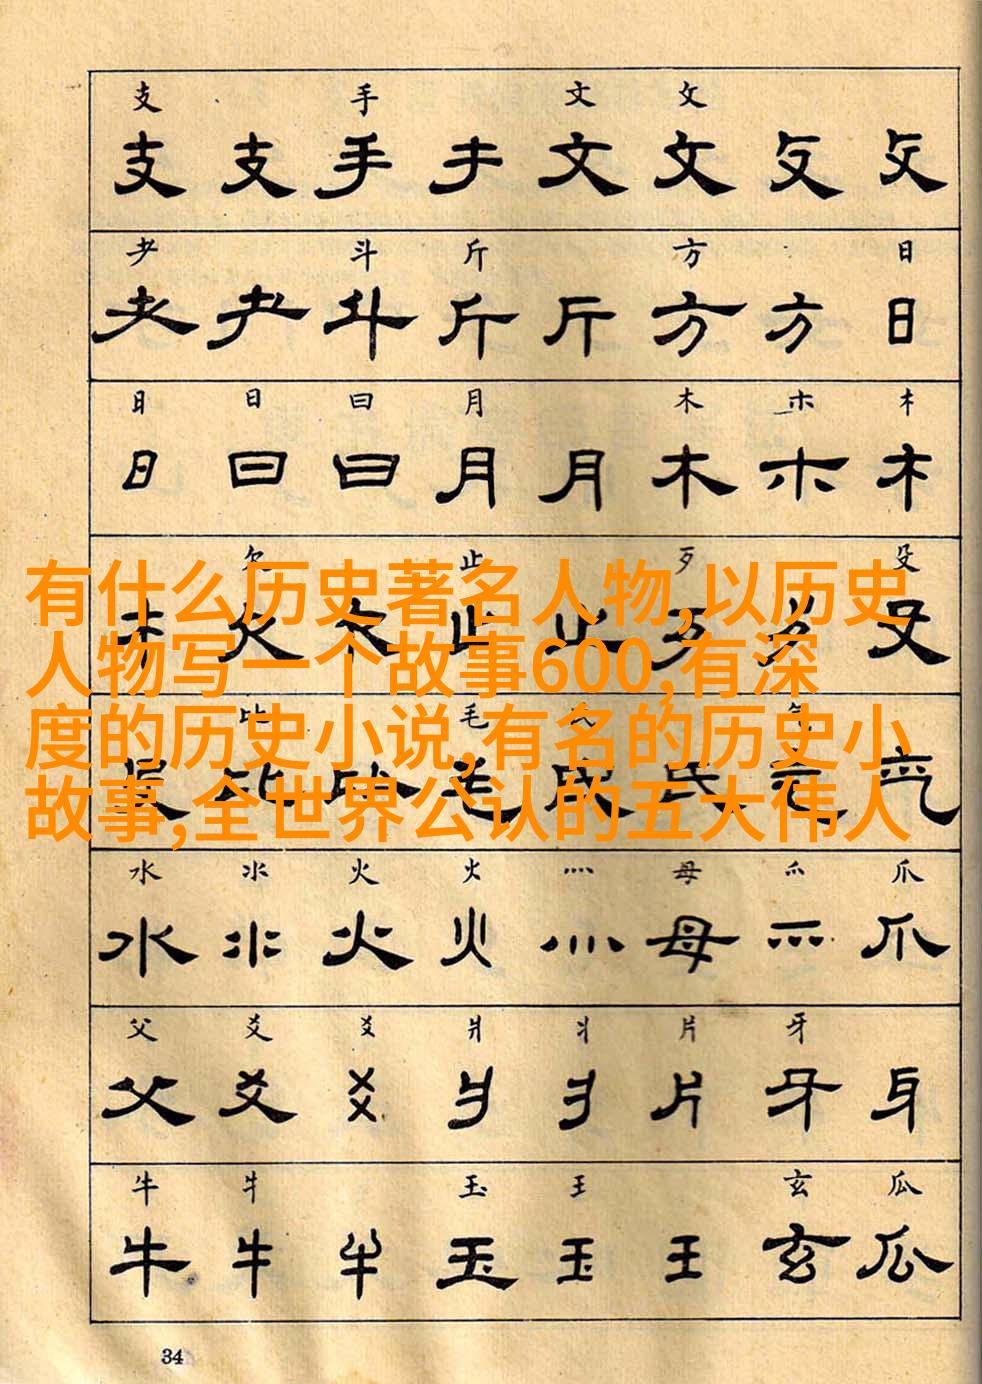 支 手 文 攵
支 支 手 手 文 攵 攵 攵
耂 斗 斤 方 日
耂 耂 斗 斤 斤 方 方 日
日 日 曰 月 木 朩 木
日 曰 曰 月 月 木 朩 木
欠 止 歹 殳
有什么历史著名人物,以历史
人物写一个故事600,有深
度的历史小说,有名的历史小
故事,全世界公认的五大伟人
比 毛 氏 气
水 氺 火 火 灬 母 爫 爪
水 氺 火 火 灬 母 爫 爪
父 爻 爻 爿 丬 片 牙
父 爻 爻 爿 丬 片 牙 牙
牛 牜 玉 王 玄 瓜
牛 牜 牛 玉 玉 王 玄 瓜
34